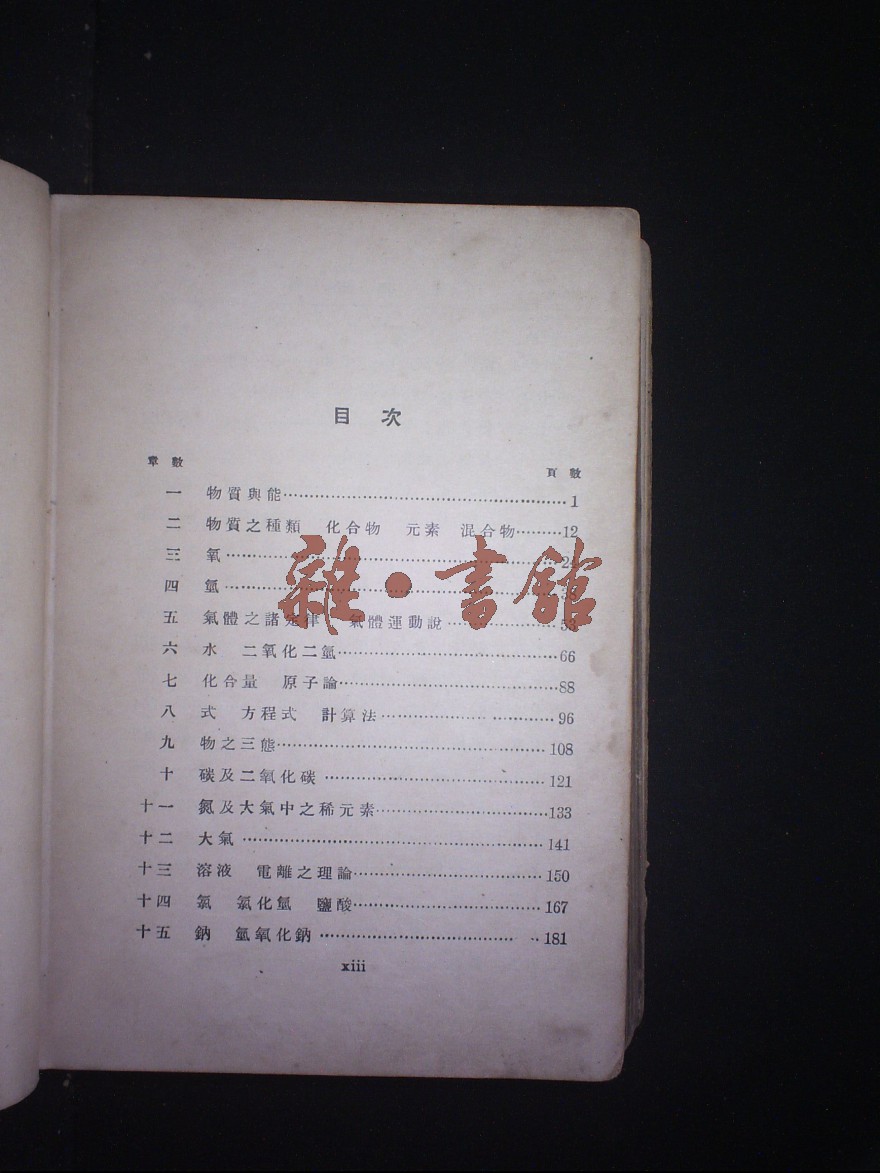 目次
章數
頁數
一 物質與能 1
二 物質之種類 化合物 元素 混合物 12
三 氧
四 氫
五 氣體之諸定律 氣體運動說 53
六 水 二氧化二氫 66
七 化合量 原子論 88
八 式 方程式 計算法 96
九 物之三態 108
十 碳及二氧化碳 121
十一 氮及大氣中之稀元素 133
十二 大氣 141
十三 溶液 電離之理論 150
十四 氯 氯化氫 鹽酸 167
十五 鈉 氫氧化鈉 181
xiii
雜·書館